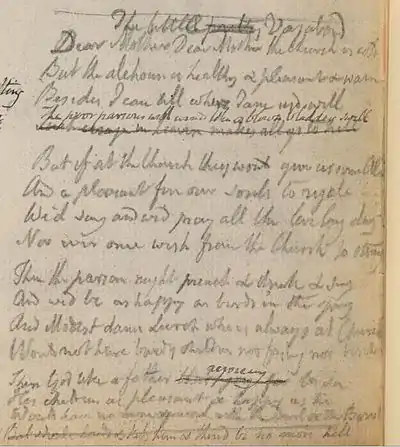 The little Vagabond
Dear Mother Dear Mother the Church is cold
But the alehouse is healthy & pleasant & warm
Besides I can tell where I am usd well
The poor parsons with wind like a blown bladder swell
makes all go to hell
But if at the Church they woud give us some Ale
And a pleasant fire our souls to regale
We'd sing and we'd pray all the live long day
Nor ever once wish from the Church to stray
Then the parson might preach & drink & sing
And wed be as happy as birds in the spring
And Modest dame Lurch who is always at Church
Would not have bandy children nor fasting nor birch
rejoicing
Then God like a father to see
His children as pleasant & happy as he
Would have no more quarrel with the Devil or the Barrel